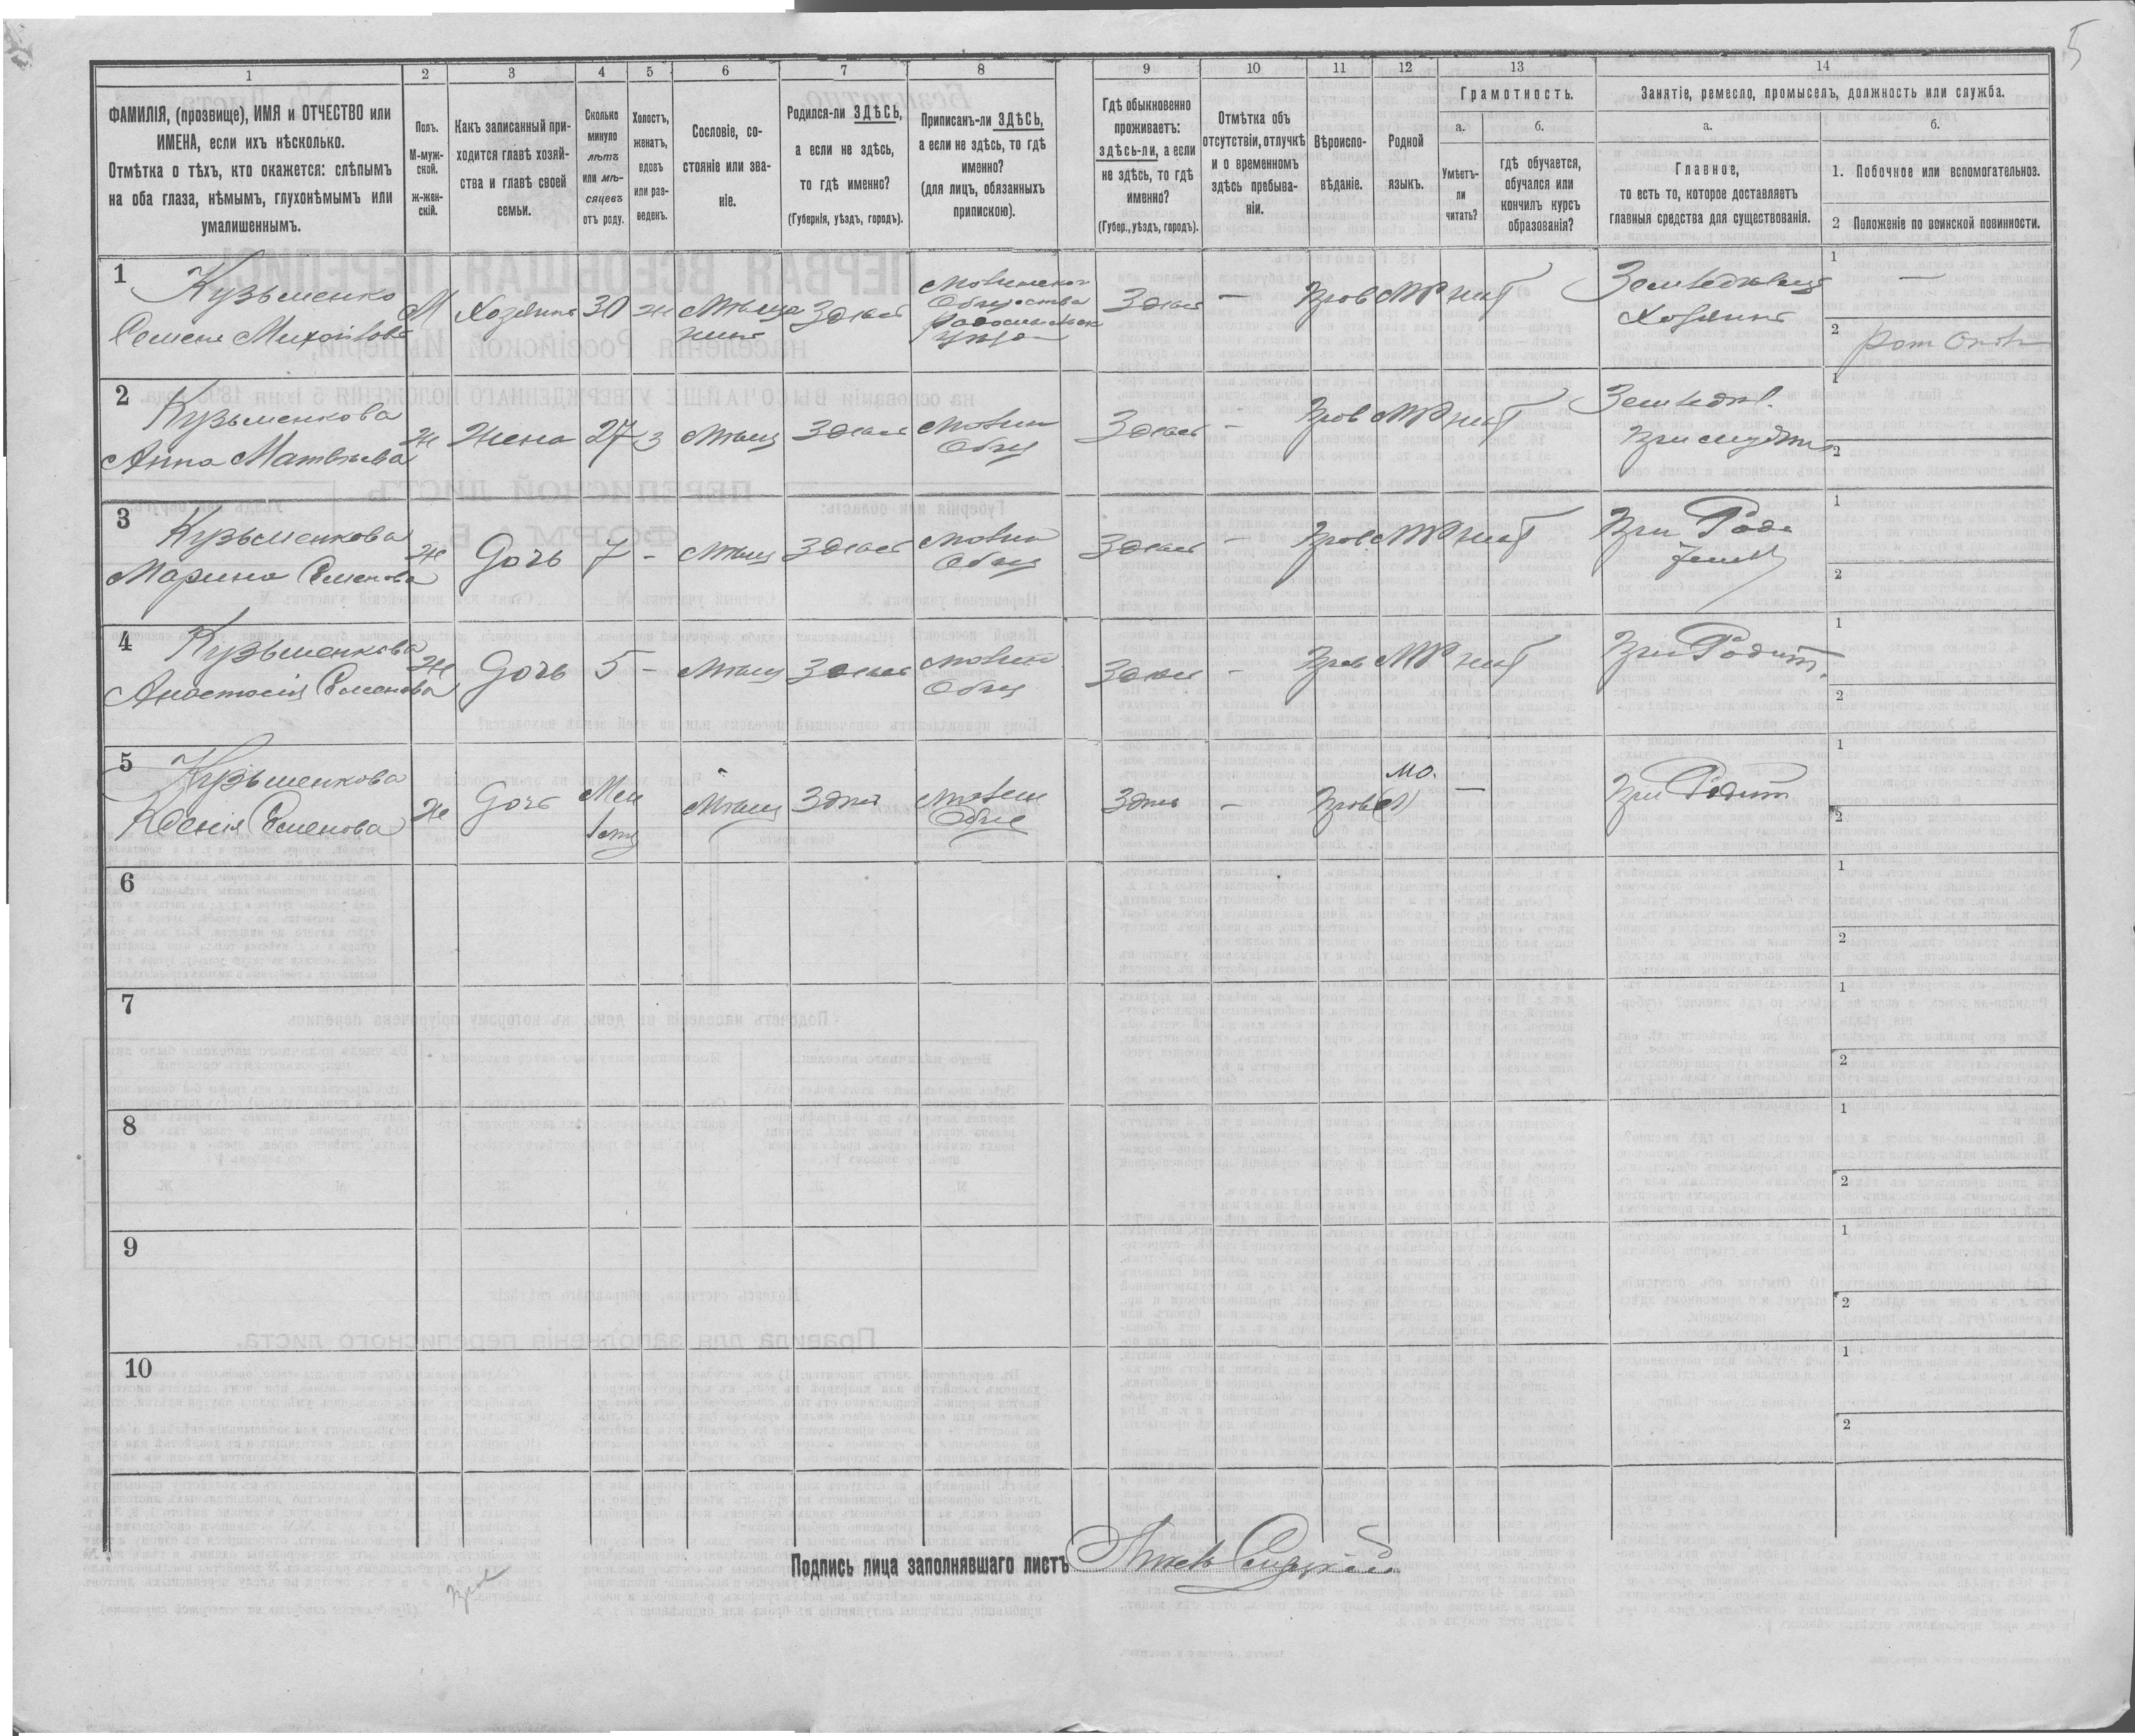 5
1
2
3
4
5
6
7
8
9
10
11
12
13
14
ФАМИЛІЯ, (прозвище), ИМЯ и ОТЧЕСТВО или
ИМЕНА, если ихъ нѣсколько.
Отмѣтка о тѣхъ, кто окажется: слѣпымъ
на оба глаза, нѣмымъ, глухонѣмымъ или
умалишеннымъ.
Полъ.
М-муж-
ской.
ж-жен-
скій.
Какъ записанный при-
ходится главѣ хозяй-
ства и главѣ своей
семьи.
Сколько
минуло
лѣтъ
или мѣ-
сяцевъ
отъ роду.
Холостъ,
женатъ,
вдовъ
или раз-
веденъ.
Сословіе, со-
стояніе или зва-
ніе.
Родился-ли ЗДѢСЬ,
а если не здѣсь,
то гдѣ именно?
(Губернія, уѣздъ, городъ).
Приписанъ-ли ЗДѢСЬ,
а если не здѣсь, то гдѣ
именно?
(для лицъ, обязанныхъ
припискою).
Гдѣ обыкновенно
проживаетъ:
здѣсь-ли, а если
не здѣсь, то гдѣ
именно?
(Губер., уѣздъ, городъ).
Отмѣтка объ
отсутствіи, отлучкѣ
и о временномъ
здѣсь пребыва-
ніи.
Вѣроиспо-
вѣданіе.
Родной
языкъ.
Грамотность.
а.
Умѣетъ-
ли
читать?
б.
гдѣ обучается,
обучался или
кончилъ курсъ
образованія?
Занятіе, ремесло, промыселъ, должность или служба.
а.
Главное,
то есть то, которое доставляетъ
главныя средства для существованія.
б.
1. Побочное или вспомогательное.
2 Положеніе по воинской повинности.
1
Кузьменко
Семенъ Михайловъ
М
Хозяинъ
30
Ж
Мѣща
нинъ
Здѣсь
Общества
Здѣсь
—
Прав
МР
нѣт
Земледѣлец
Хозяинъ
1
—
2
2
Кузьменкова
Анна Матвѣева
Ж
Жена
27
З
Мѣщ
Здѣсь
Общ
Здѣсь
-
Прав
МР
нѣт
Земледѣл.
При мужѣ
1
2
3
Кузьменкова
Марина Семенова
Ж
Дочь
7
-
Мѣщ
Здѣсь
Общ
Здѣсь
-
Прав
МР
нѣт
При Роди
1
2
4
Кузьменкова
Анастасія Семенова
Ж
Дочь
5
-
Мѣщ
Здѣсь
Общ
Здѣсь
-
Прав
МР
нѣт
При Родит.
1
2
5
Кузьменкова
Ксенія Семенова
Ж
Дочь
Мѣщ
Здѣсь
Общ
Здѣсь
-
Прав
мо.
—
При Родит
1
2
6
1
2
7
1
2
8
1
2
9
1
2
10
1
2
Подпись лица заполнявшаго листъ